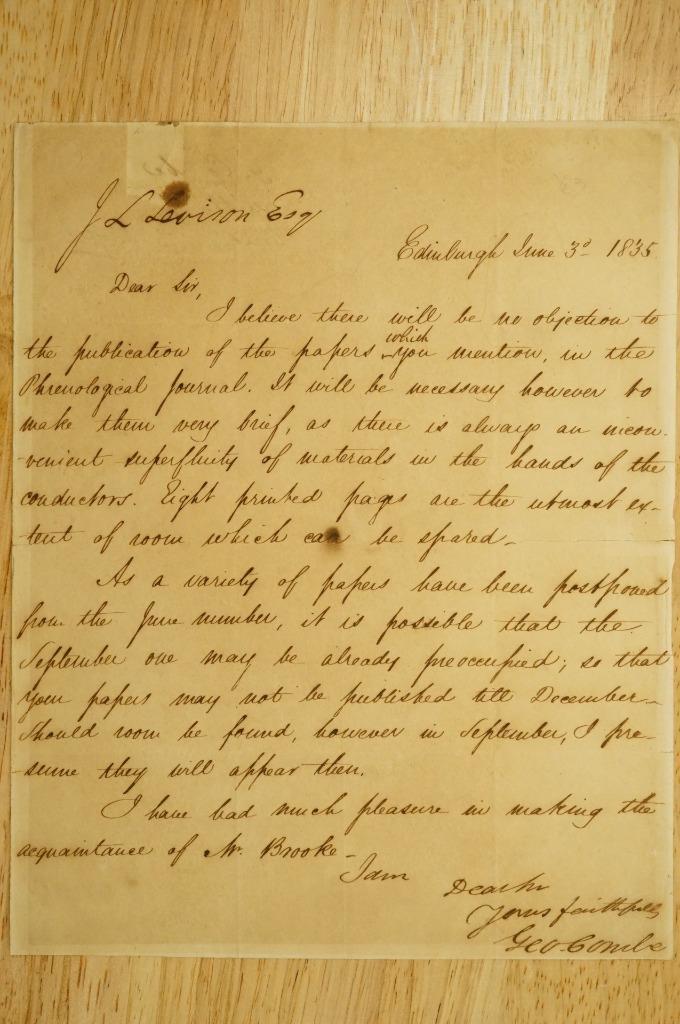 J L Levison Esq
Edinburgh June 3d 1835
Dear Sir,
I believe there will be no objection to
the publication of the papers which you mention, in the
Phrenological Journal. It will be necessary however to
make them very brief, as there is always an incon-
-venient superfluity of materials in the hands of the
conductors. Eight printed pages are the utmost ex-
-tent of room which can be spared_
As a variety of papers have been postponed
from the June number, it is possible that the
September one may be already preoccupied; so that
your papers may not be published till December_
Should room be found, however in September, I pre-
-sume they will appear then.
I have had much pleasure in making the
acquaintance of Mr. Brooke_
I am
Dear Sir
Yours faithfully
Geo. Combe